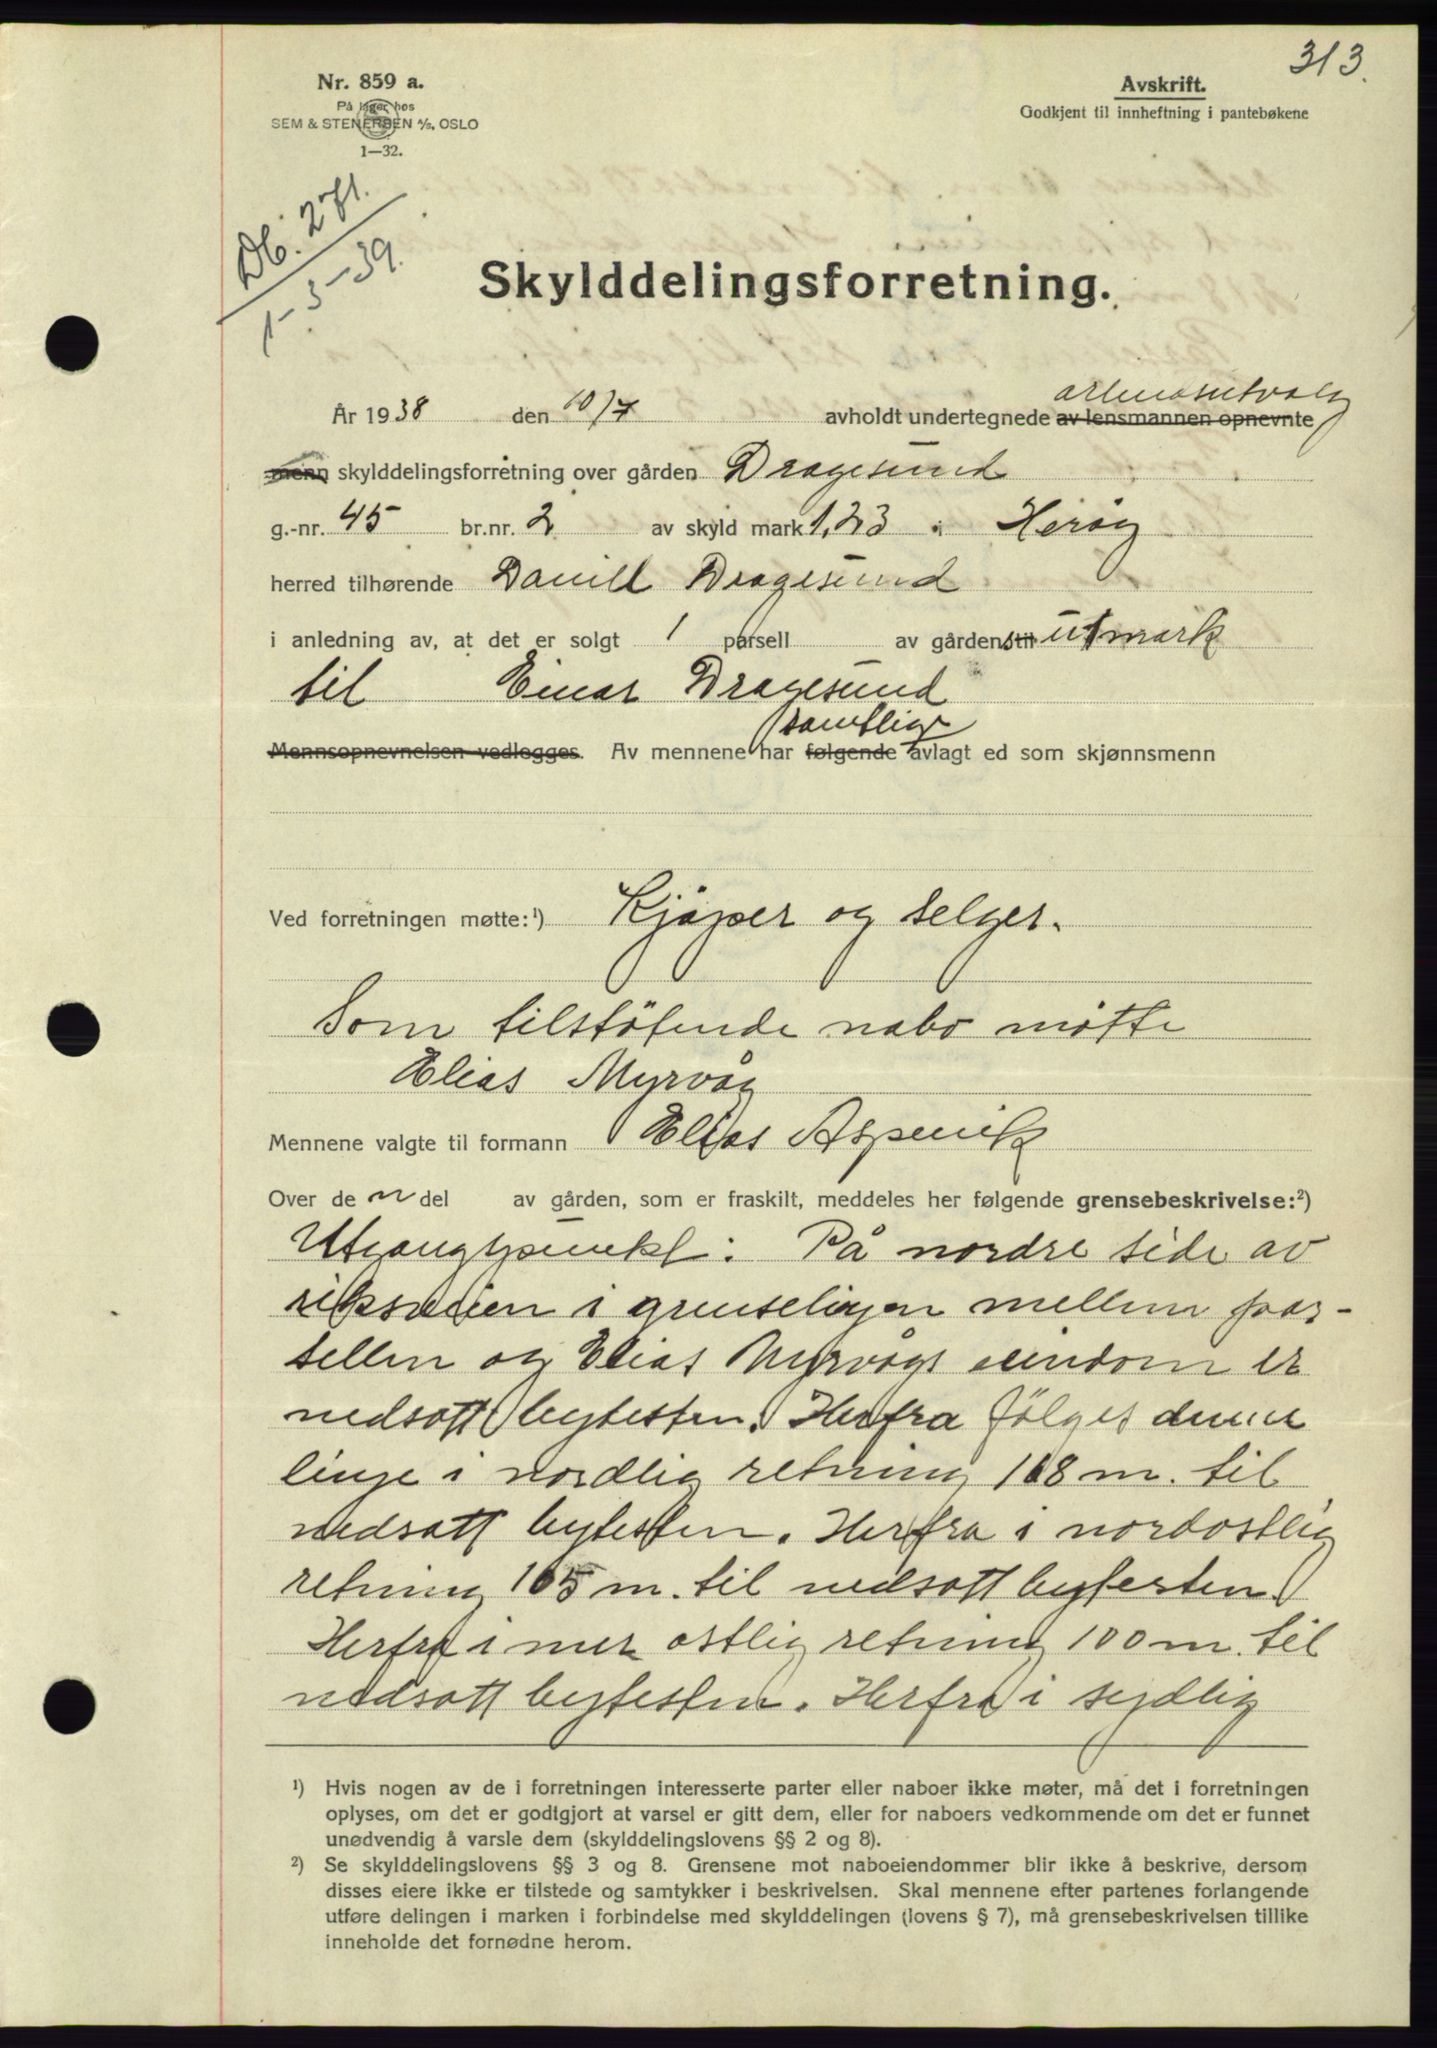 313.
Nr. 859 a.
På lager hos
SEM & STENERSEN A/S, OSLO
1—32.
Avskrift.
Godkjent til innheftning i pantebøkene
Db. 271.
1-3-39.
Skylddelingsforretning.
arbeidsutvalg
År 1938 den 10/7 avholdt undertegnede av lensmannen opnevnte
menn skylddelingsforretning over gården Dragesund
g.-nr. 45 br.nr. 2 av skyld mark 1,23 i Herøy
herred tilhørende Daniel Dragesund
i anledning av, at det er solgt 1 parsell av gårdens til utmark
til Einar Dragesund
samtlige
Mennsopnevnelsen vedlegges. Av mennene har følgende avlagt ed som skjønnsmenn
Ved forretningen møtte:¹) Kjöper og selger.
Som tilstötende nabo mötte
Elias Myrvåg
Mennene valgte til formann Elias Aspevik
Over de n del av gården, som er fraskilt, meddeles her følgende grensebeskrivelse:²)
Utgangspunkt: På nordre side av
riksveien i grenselinjen mellem par-
sellen og Elias Myrvågs eiendom er
nedsatt bytesten. Herfra fölges denne
linje i nordlig retning 168 m. til
nedsatt bytesten. Herfra i nordostlig
retning 165 m. til nedsatt bytesten.
Herfra i mer ostlig retning 100 m. til
nedsatt bytesten. Herfra i sydlig
¹) Hvis nogen av de i forretningen interesserte parter eller naboer ikke møter, må det i forretningen
oplyses, om det er godtgjort at varsel er gitt dem, eller for naboers vedkommende om det er funnet
unødvendig å varsle dem (skylddelingslovens §§ 2 og 8).
²) Se skylddelingslovens §§ 3 og 8. Grensene mot naboeiendommer blir ikke å beskrive, dersom
disses eiere ikke er tilstede og samtykker i beskrivelsen. Skal mennene efter partenes forlangende
utføre delingen i marken i forbindelse med skylddelingen (lovens § 7), må grensebeskrivelsen tillike
inneholde det fornødne herom.